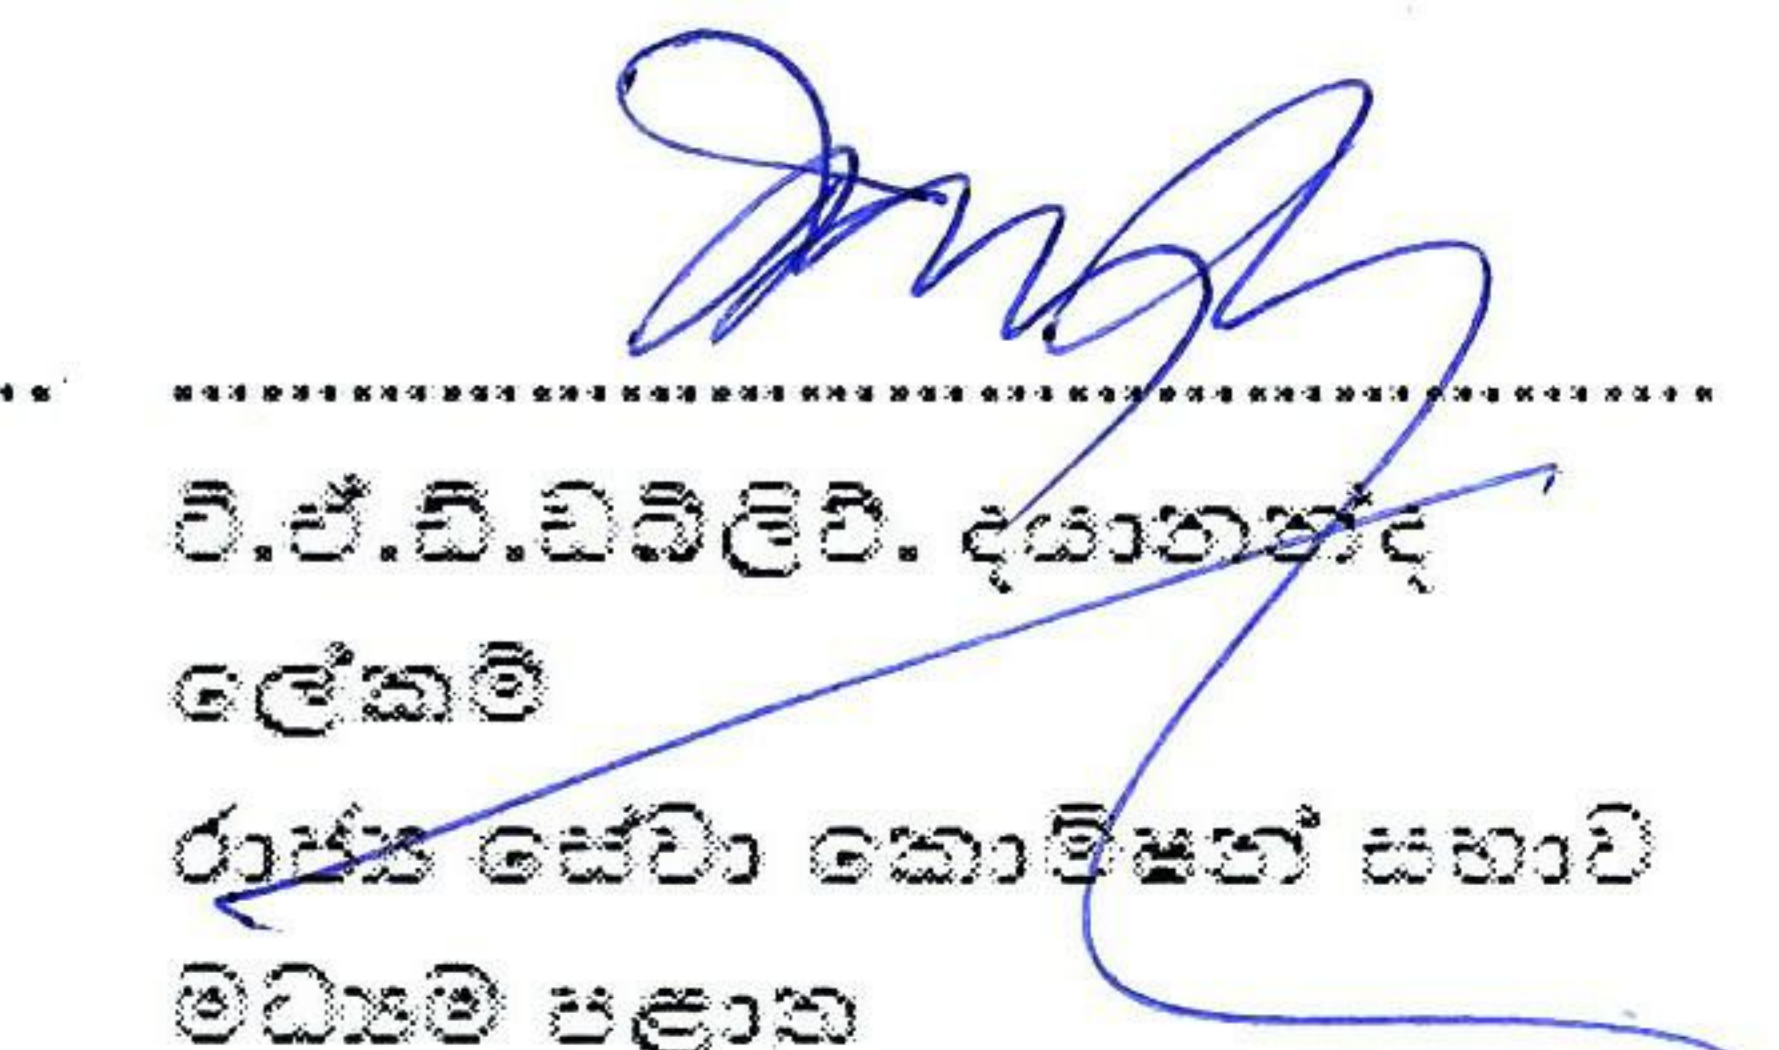 ටී.ඒ.ඩී.ඩබ්ලිව්. දයානන්ද
ලේකම්
රාජ්‍ය සේවා කොමිෂන් සභාව
මධ්‍යම පළාත